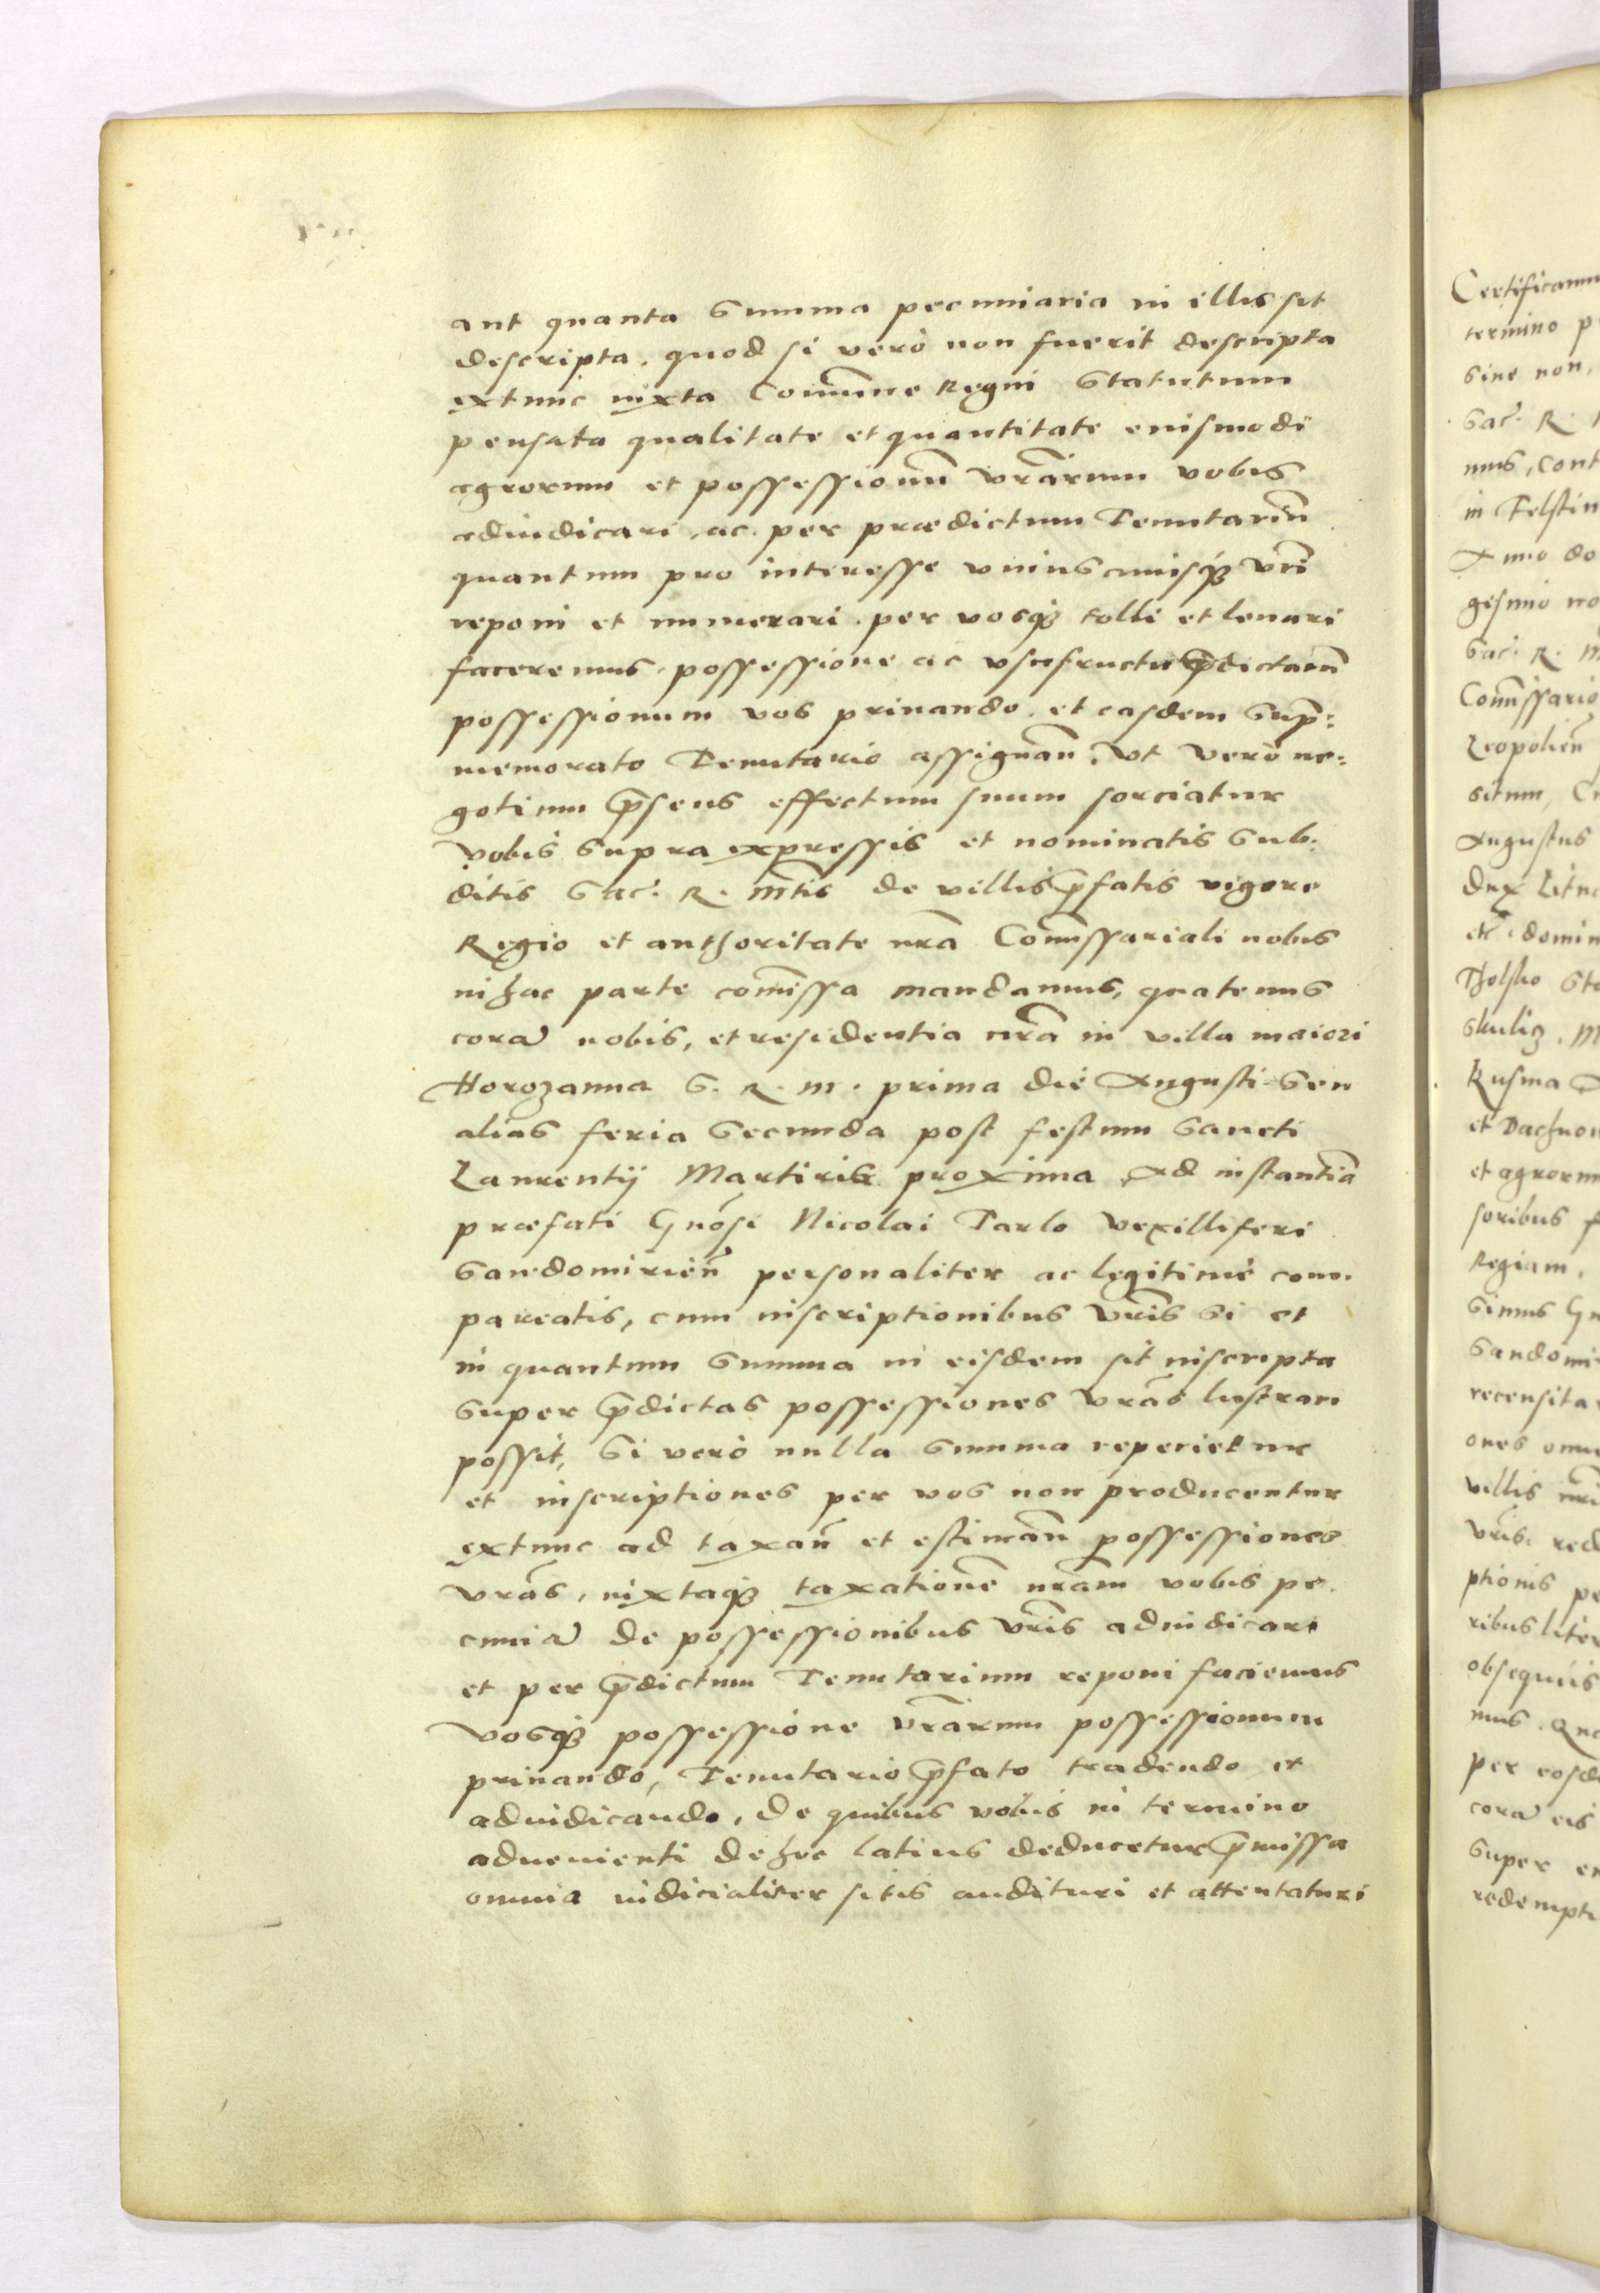 aut quanta Summa pecuniaria in illis sit
descripta. quod si verò non fuerit descripta
extunc iuxta Com̄une Regni Statutum
pensata qualitate et quantitate eiusmodi
agrorum et possessionū vr̄arum vobis
adiudicari, ac per prædictum Tenutariū
quantum pro interesse vniuscuiusq3 vr̄i
reponi et numerari. per vosq3 tolli et leuari
faceremus. possessione ac vsufructu p̄dictarū
possessionum vos priuando. et easdem Sup̄:
memorato Tenutario assignan̄. Vt verò ne:
gotium p̄sens effectum suum sorciatur
vobis supra expressis et nominatis Sub:
ditis Sac. R. Mtis de villis p̄fatis vigore
Regio et authoritate nr̄a Com̄issariali nobis
in hac parte com̄issa mandamus, quatenus
corā nobis, et residentia nr̄a in villa maiori
Horozanna S. R. M. prima die Augusti Seu
alias feria Secunda post festum Sancti
Laurentij Martiris proxima Ad instantiā
præfati Gn̄osi Nicolai Tarlo Vexilliferi
Sandomirien̄ personaliter ac legitimè com:
pareatis, cum inscriptionibus vr̄is Si et
in quantum Summa in eisdem sit inscripta
Super p̄dictas possessiones vr̄as lustrari
possit, Si verò nulla Summa reperietur
et inscriptiones per vos non producentur
extunc ad taxan̄ et estiman̄ possessiones
vr̄as, iuxtaq3 taxationē nr̄am vobis pe
cuniā de possessionibus vr̄is adiudicari
et per p̄dictum Tenutarium reponi faciemus
Vosq3 possessione vr̄arum possessionum
priuando, Tenutario p̄fato tradendo et
adiudicando, De quibus vobis in termino
aduenienti de hoc latius deducetur p̄missa
omnia iudicialiter sitis audituri et attentaturi

Certificamu
termino p
Siue non,
Sac. R.
mus, Cont
in Felstin
Anno do
gesimo no
Sac. R. M
Com̄issario
Leopolien̄
situm,
Augustus
Dux Litua
etc domin
Tholsko Sta
Skulig. M
Kusma
et Dachno
et agrorum
soribus f
Regiam.
Simus Gn
Sandomi
recensita
ones omn
villis nr̄i
vr̄is. red
ptionis pe
ribus liter
obsequiis
mus. Quo
per eosd
corā eis
Super e
redempti